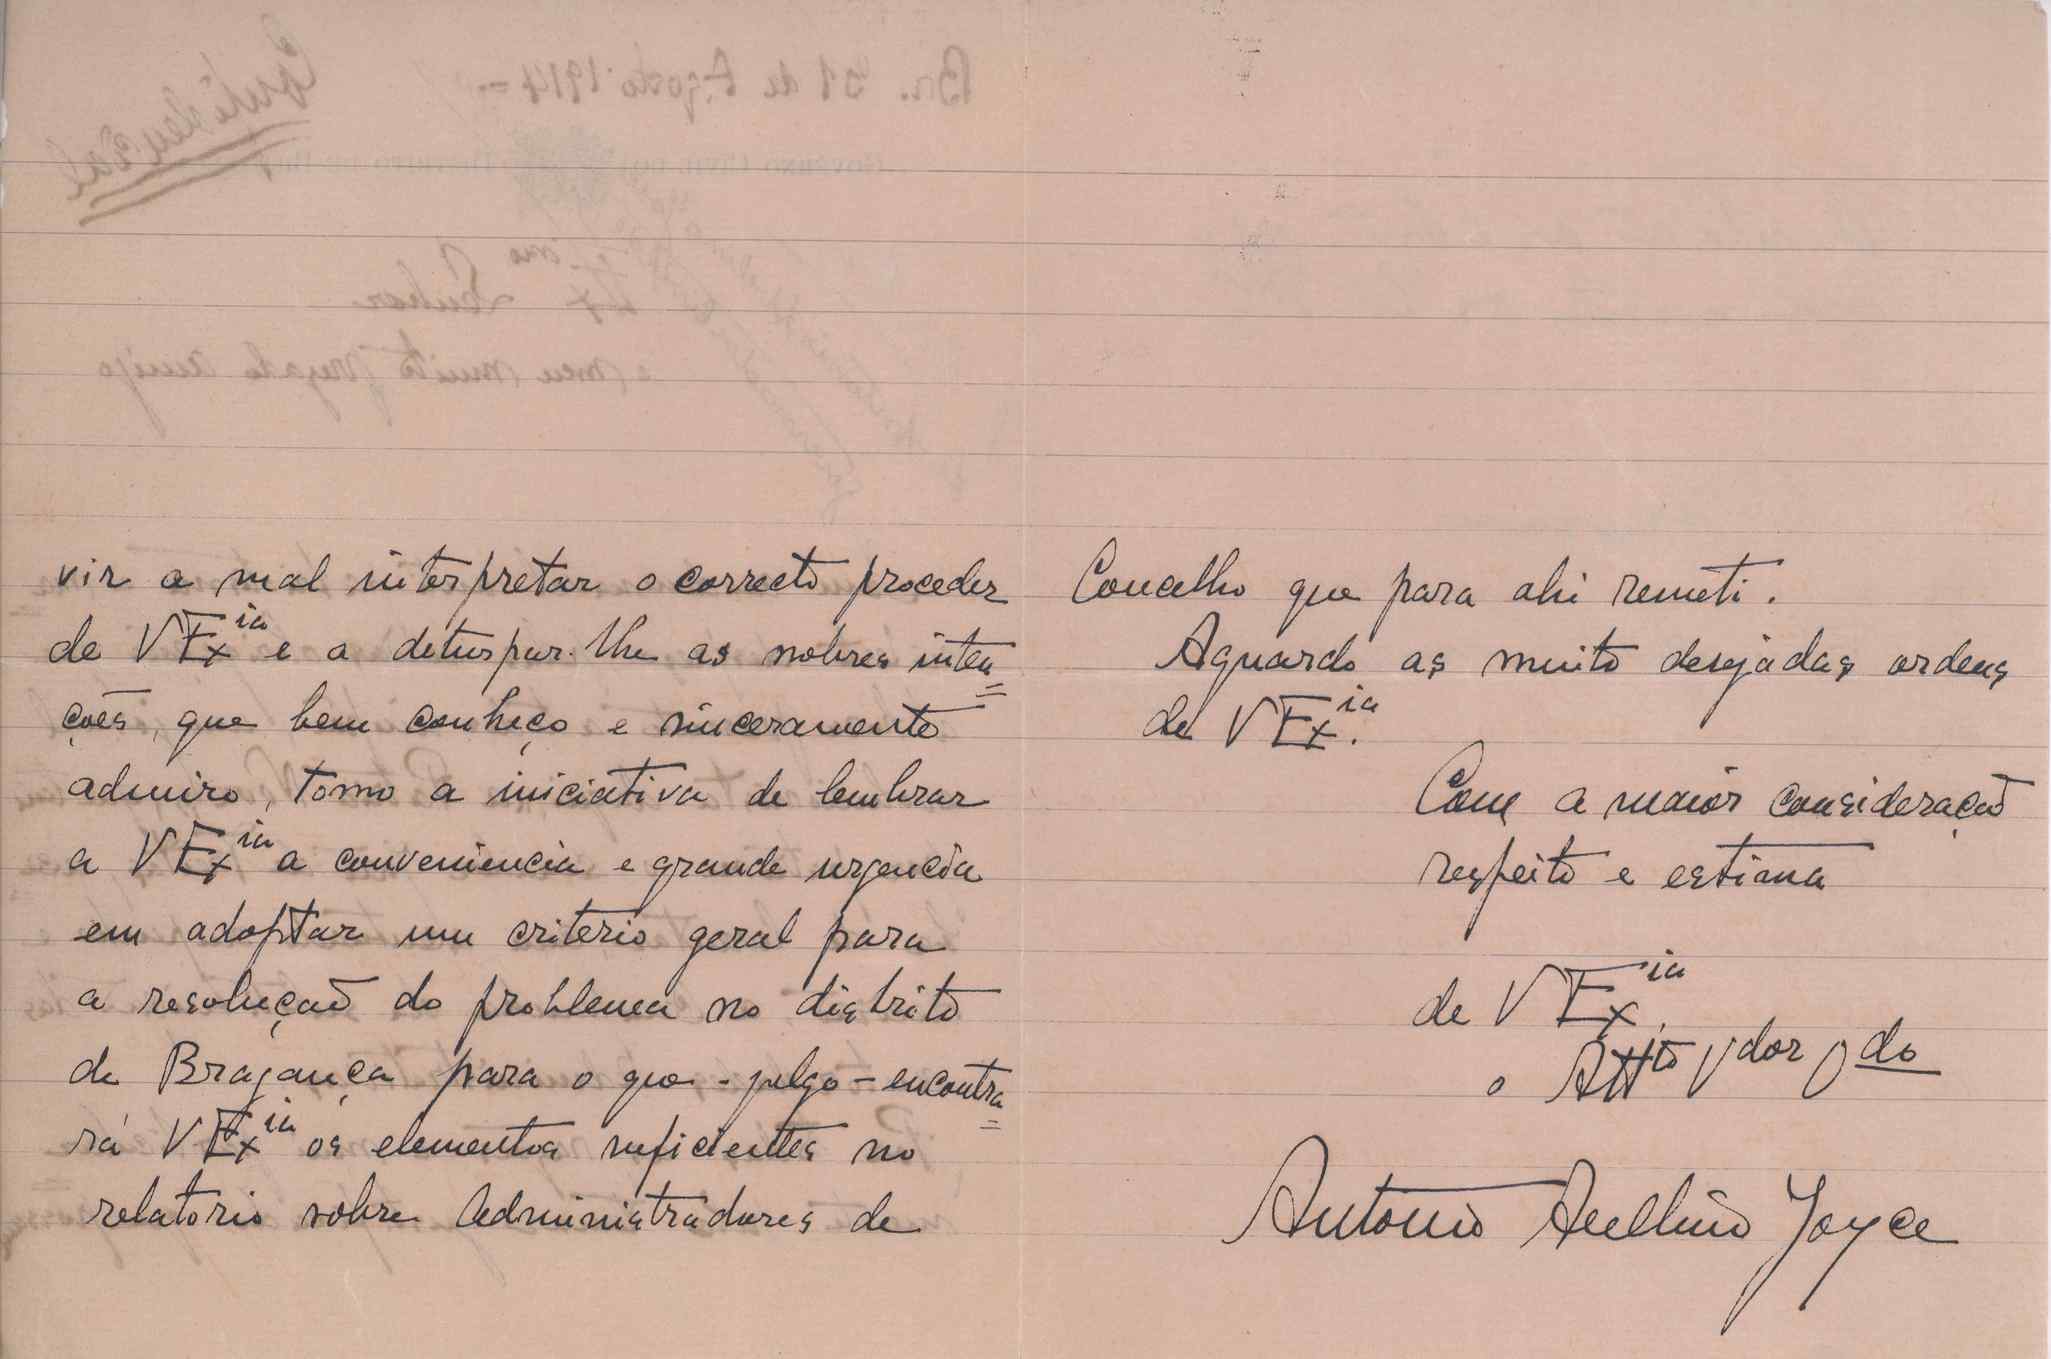 vir a mal interpretar o correcto proceder
de V Ex.ia e a deturpar-lhe as nobres inten=
ções, que bem conheço e sinceramente
admiro, tomo a iniciativa de lembrar
a V Ex.ia a conveniencia e grande urgencia
em adoptar um criterio geral para
a resolução do problema no distrito
de Bragança para o que - julgo - encontra=
rá V Ex.ia os elementos suficientes no
relatorio sobre Administradores de
Concelho que para ahi remeti.
Aguardo as muito desejadas ordens
de V Ex.ia
Com a maior consideração
respeito e estima
de V Ex.ia
o Att.to V.dor O.do
Antonio Avellino Joyce
Br. 31 de Agosto 1914 -
Confidencial
GOVERNO CIVIL DO DISTRITO DE
Ex.mo Senhor
e meu muito prezado amigo